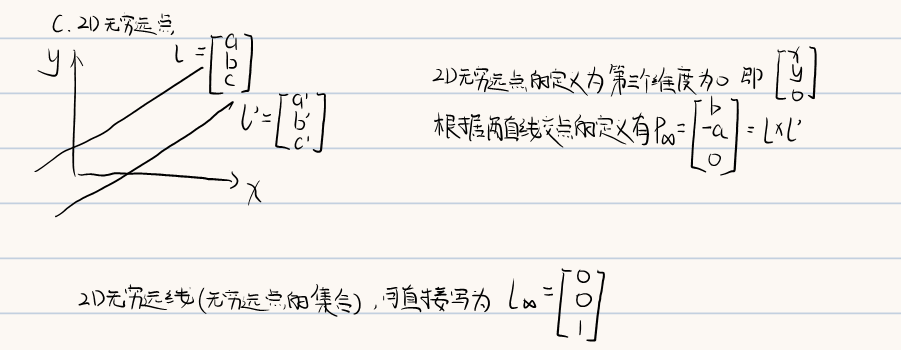 C. 2D无穷远点
y
l = [a b c]
l' = [a' b' c']
x
2D无穷远点的定义为第三个维度为0 即 [x y 0]
根据两直线交点的定义有 P∞ = [b -a 0] = l×l'
2D无穷远线(无穷远点的集合), 可直接写为 l∞ = [0 0 1]